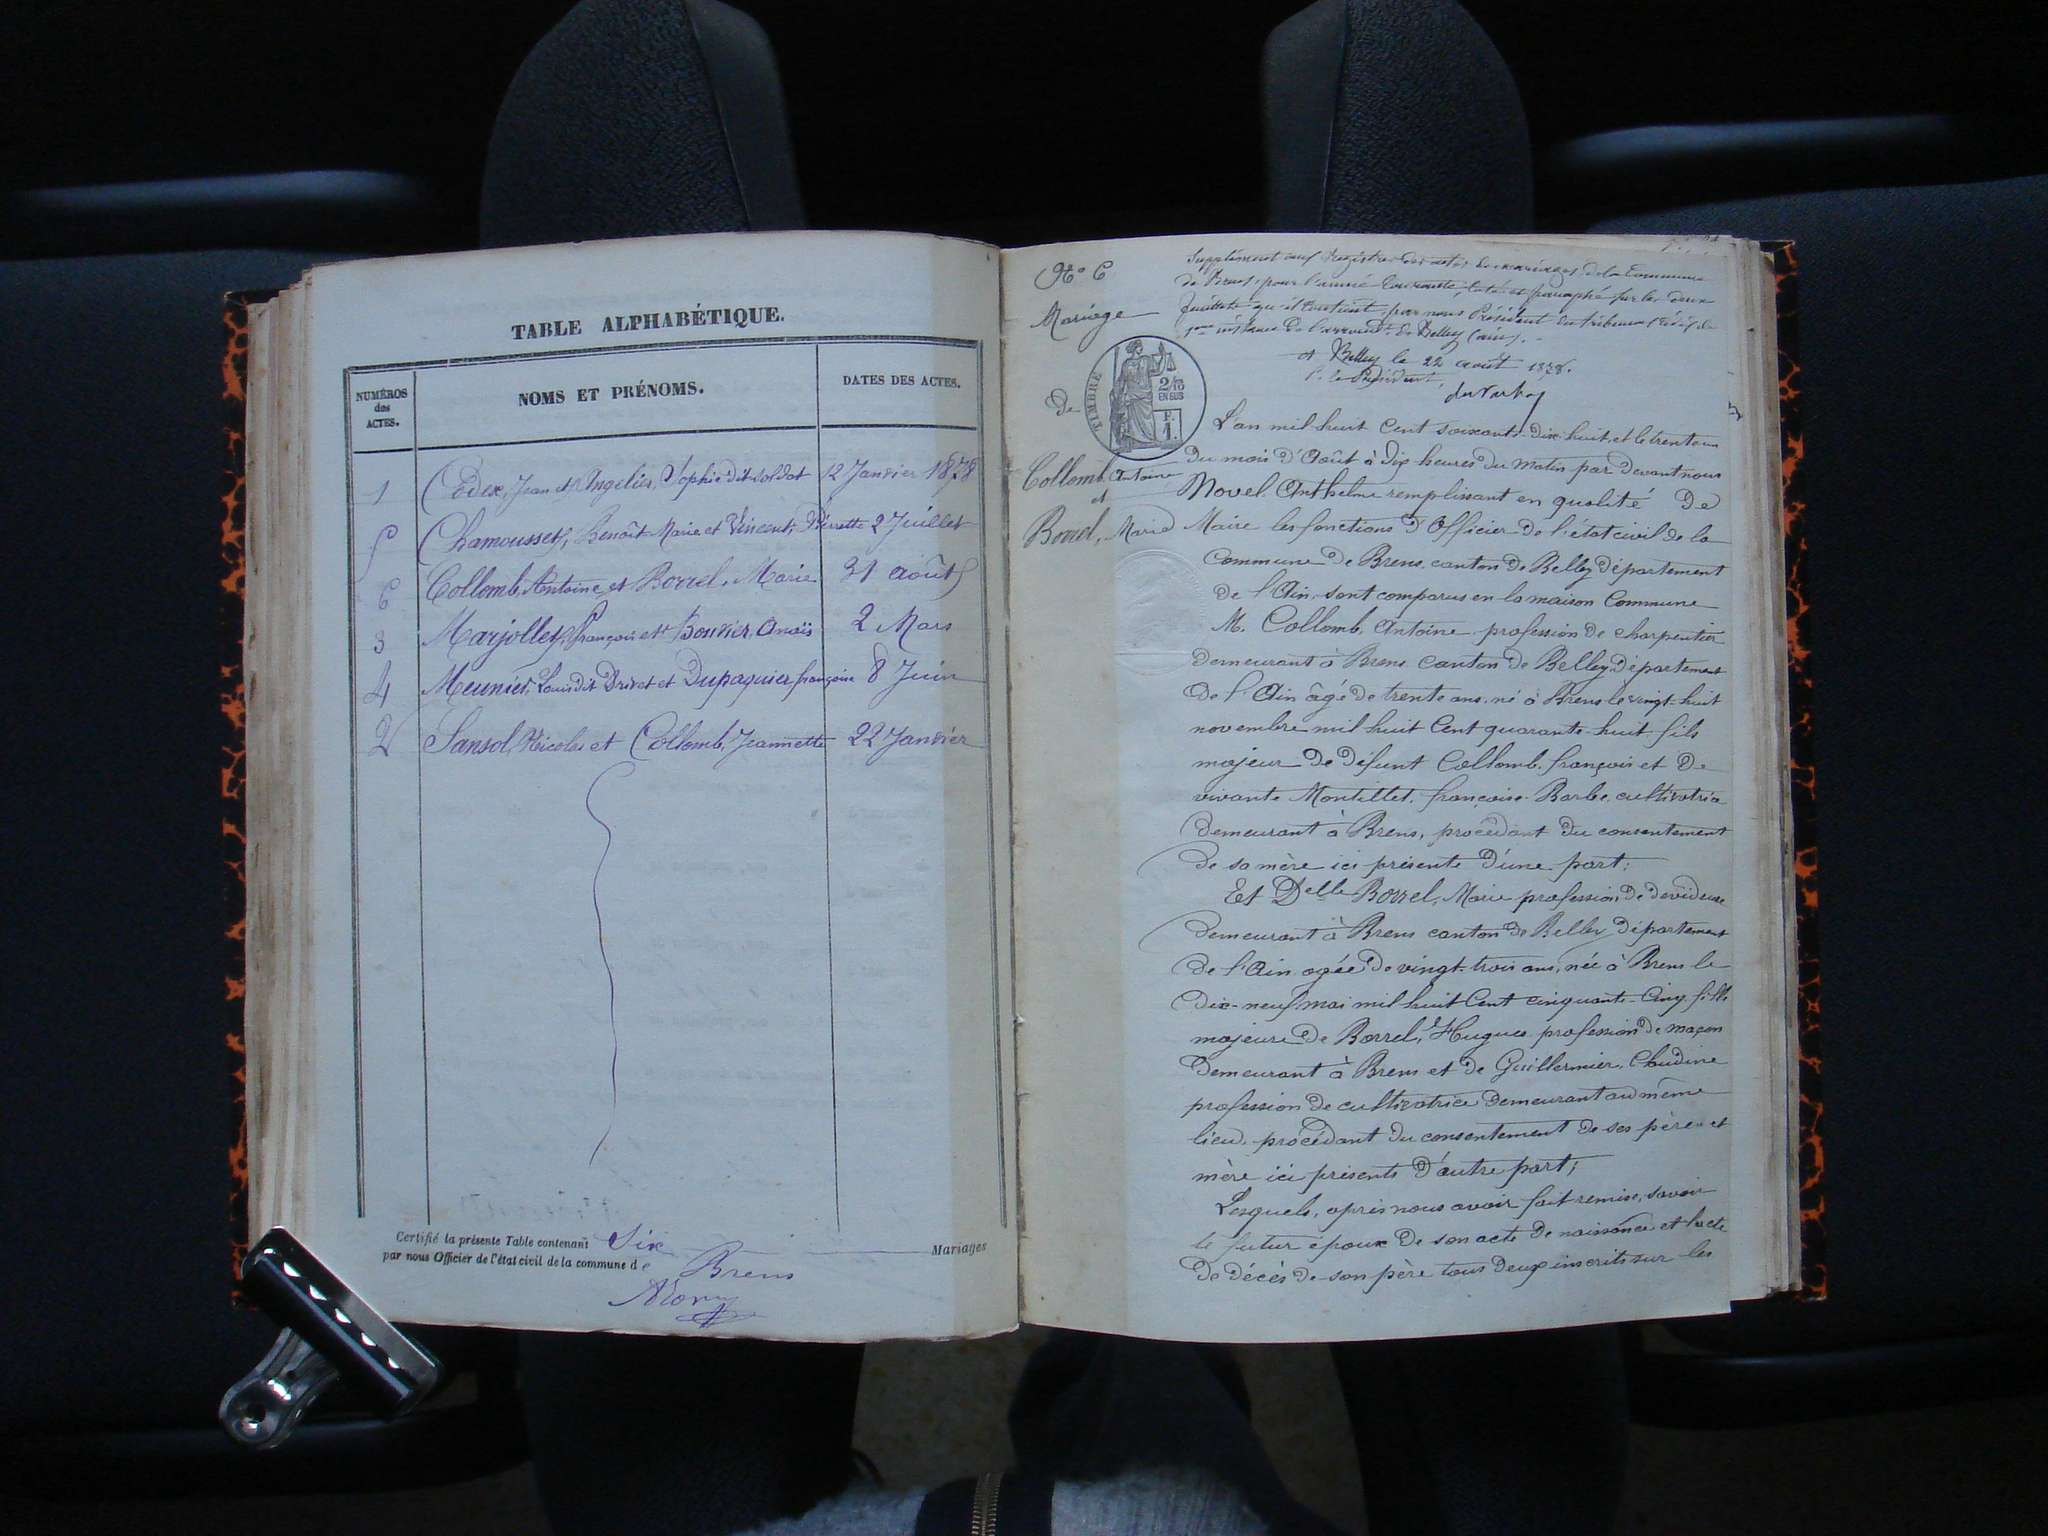 TABLE ALPHABÉTIQUE.
NUMÉROS
des
ACTES.
NOMS ET PRÉNOMS.
DATES DES ACTES.
1 Codex, Jean et Angelier, Sophie dit Soldat 12 Janvier 1878
5 Chamousset, Benoît Marie et Vincent, Pierrette 2 Juillet
6 Collomb, Antoine et Borrel, Marie 31 août
3 Marjollet, françois et Bouvier, Anaïs 2 Mars
4 Meunier, Louis dit Drivet et Dupasquier françoise 8 Juin
2 Sansol, Nicolas et Collomb, Jeannette 22 Janvier
Certifié la présente Table contenant Six Mariages
par nous Officier de l'état civil de la commune de Brens
N° 6
Mariage
De
Collomb, Antoine
et
Borrel, Marie
TIMBRE
2/10
EN SUS
F.
1.
Supplément aux Registres des actes de mariages de la Commune
de Brens, pour l'année courante, coté et paraphé sur les deux
feuillets qu'il contient par nous Président du tribunal de
1ère instance de l'arrondt de Belley (ain).
Belley le 22 août 1878.
P. le Président,
L'an mil huit cent soixante dix-huit, et le trente un
du mois d'Août à dix heures du matin par devant nous
Novel Anthelme remplissant en qualité De
Maire les fonctions d'Officier de l'état civil de la
Commune de Brens, canton de Belley département
de l'Ain, sont comparus en la maison Commune
M. Collomb, Antoine profession de charpentier
demeurant à Brens canton de Belley département
de l'Ain âgé de trente ans, né à Brens le vingt-huit
novembre mil huit cent quarante-huit fils
majeur de défunt Collomb, françois et De
vivante Montillet, françoise Barbe, cultivatrice
demeurant à Brens, procédant du consentement
de sa mère ici présente d'une part:
Et Delle Borrel, Marie profession de dévideuse
demeurant à Brens canton de Belley département
de l'Ain agée de vingt-trois ans, née à Brens le
dix-neuf mai mil huit cent cinquante-cinq fille
majeure de Borrel, Hugues profession de maçon
demeurant à Brens et de Guillermier, Claudine
profession de cultivatrice demeurant au même
lieu, procédant du consentement de ses père et
mère ici présents d'autre part;
Lesquels, après nous avoir fait remise, savoir
le futur époux de son acte de naissance et l'acte
de décès de son père tous deux inscrits sur les